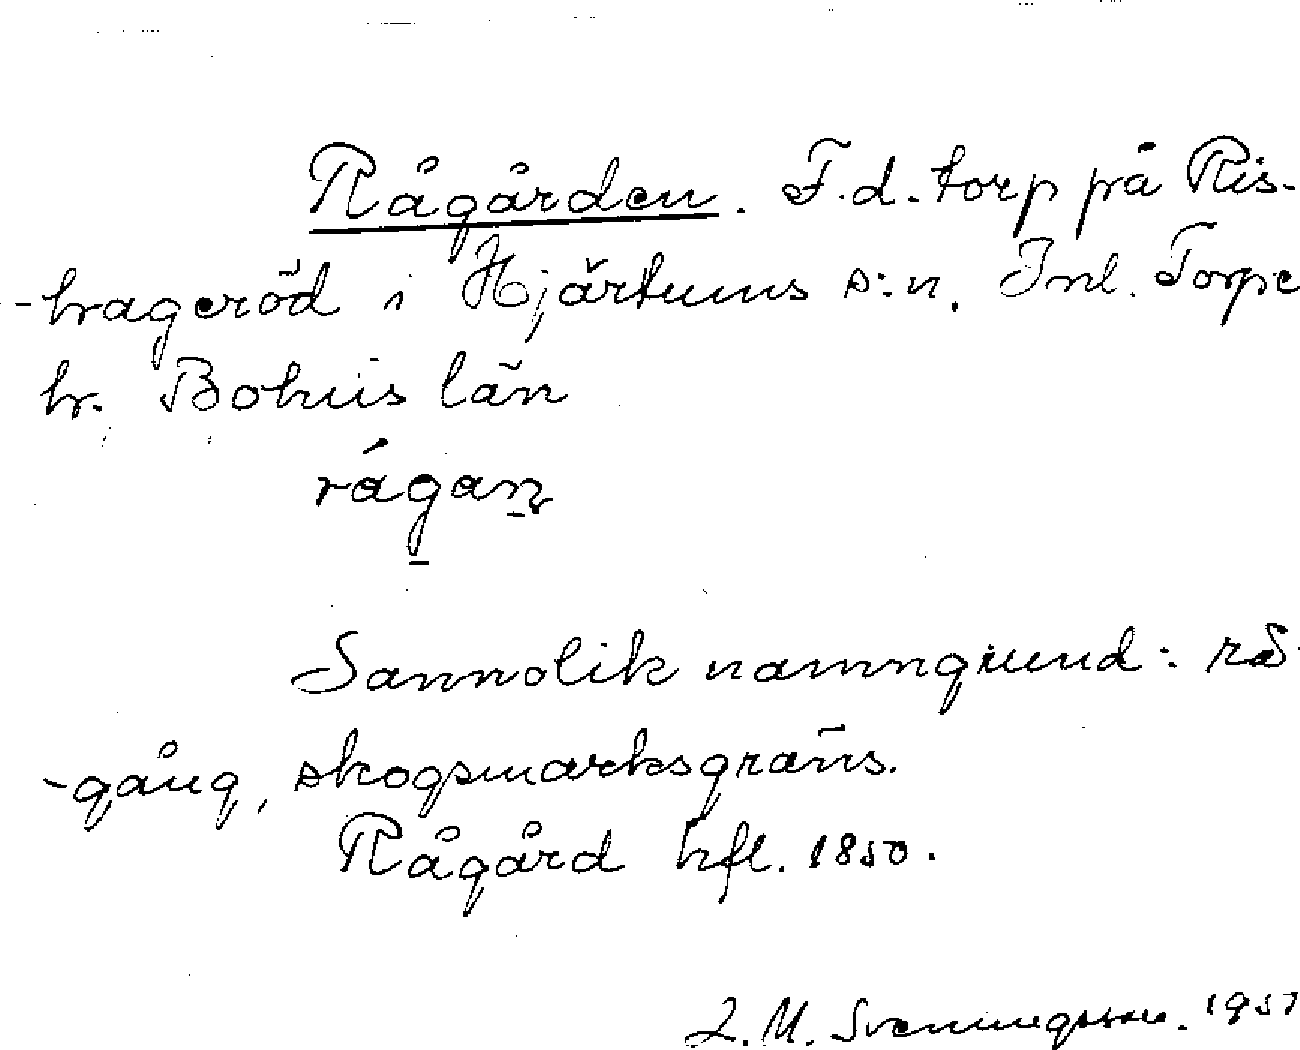 Rågården. F.d. torp på Ris-
-hageröd i Hjärtums s:n. Inl. Torpe
hr. Bohus län
rágan
Sannolik namngrund: rå
-gång, skogsmarksgräns.
Rågård hfl. 1850.
L. M. Svenungsson. 1957